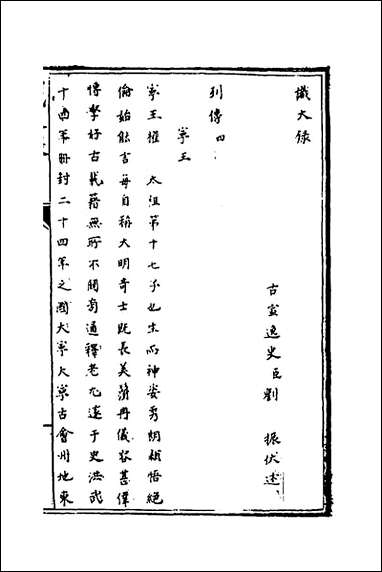 識大錄
古宣逸史臣劉　振伏述
列傳四
寧王
寧王權　太祖第十七子也生而神姿秀朗穎悟絕
倫始能言每自稱大明奇士既長美鬚髯儀容甚偉
博學好古載籍無所不閱旁通釋老尤邃于史洪武
十四年冊封二十四年之國大寧大寧古會州地東